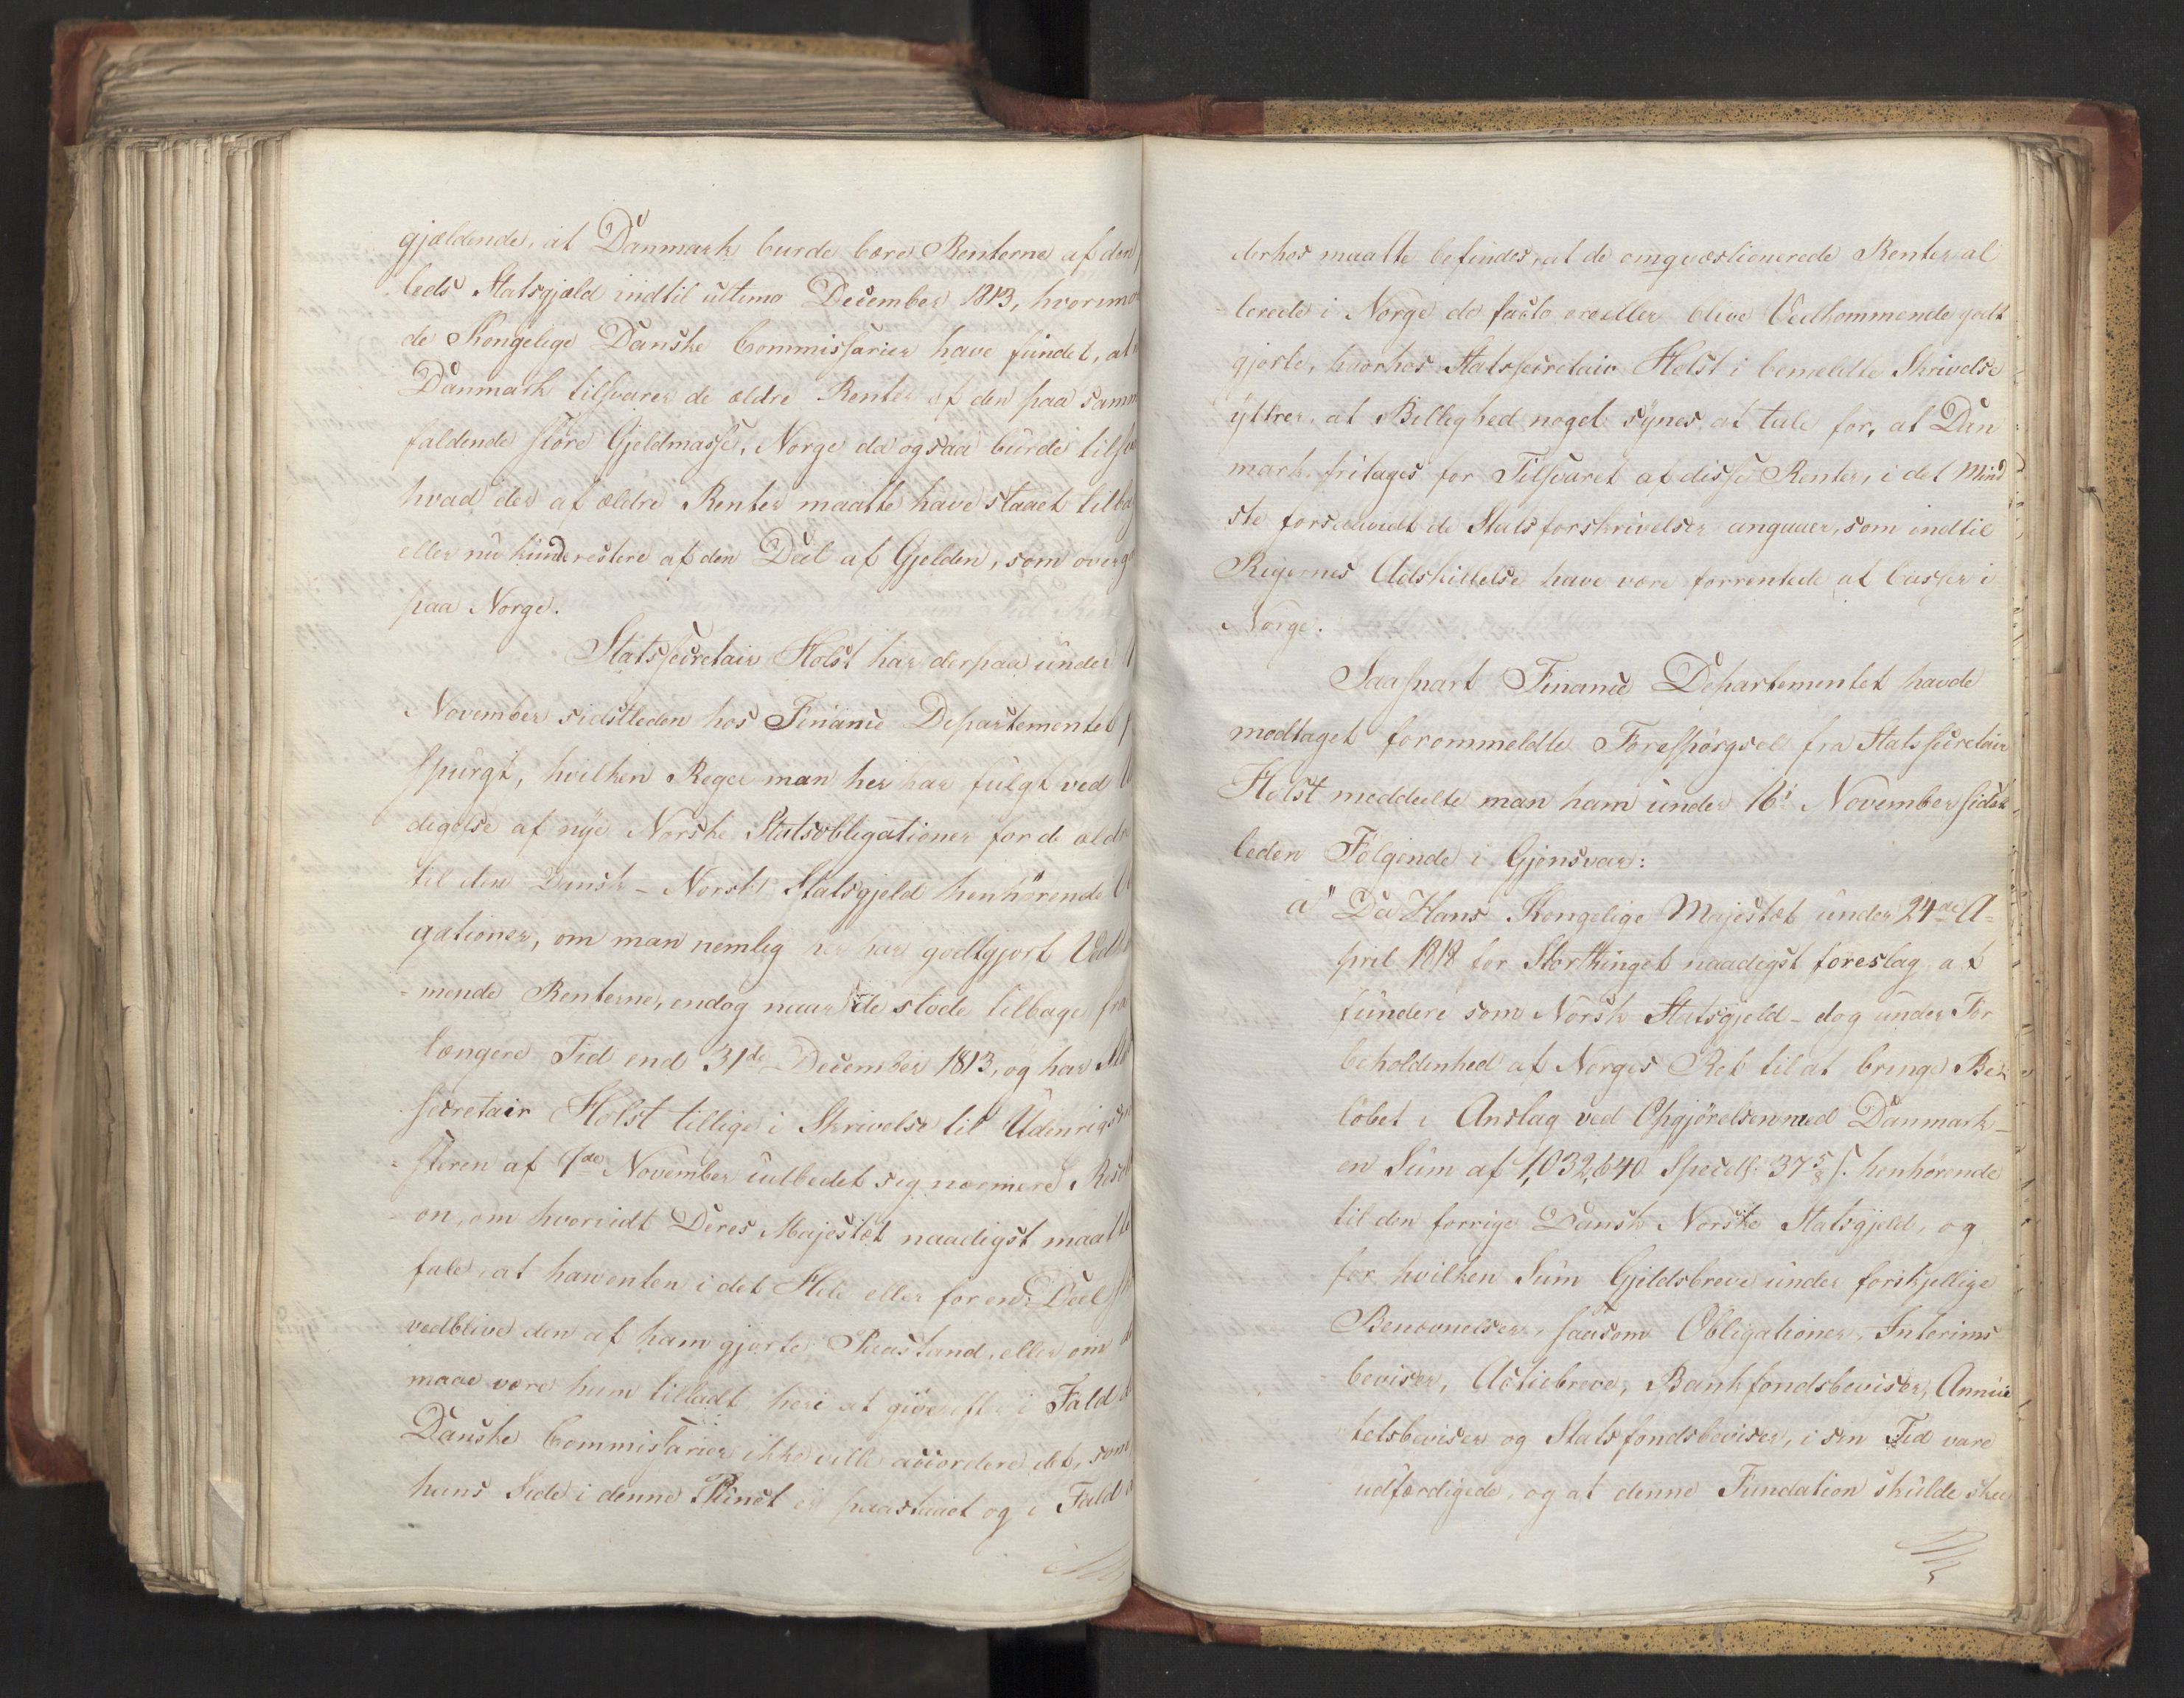 gjældende, at Danmark burde bære Renterne af den
leds Statsgjæld indtil ultimo December 1813, hvorimo
de Kongelige Danske Commissarier have fundet, at
Danmark tilsvarer de ældre Renter af den paa samm
faldende större Gjeldmasse, Norge da ogsaa burde tilsva
hvad der af ældre Renter maatte have staaet tilba
eller nu kunde restere af den Deel af Gjelden, som overg
paa Norge.
Statssecretair Holst har derpaa under
November sidstleden hos Finance Departementet
spurgt, hvilken Regel man her har fulgt ved
digelse af nye Norske Statsobligationer for de ældre
til den Dansk-Norske Statsgjeld henhörende
gationer, om man nemlig her har godtgjort Vedk
-mende Renterne, endog naar de stode tilbage fra
længere Tid end 31de December 1813, og har Stat
secretair Holst tillige i Skrivelse til Udenrigs
-steren af 9de November udbedet sig nærmere Reso
-on, om hvorvidt Deres Majestæt naadigst maatte
fale, at han enten i det Hele eller for en Deel
vedblive den af ham gjorte Paastand, eller om d
maae være ham tilladt heri at give efter i Fald
Danske Commissarier ikke ville accordere det, som
hans Side i denne Punct er paastaaet og i Fald
derhos maatte befindes, at de omqvæstionerede Renter al
-lerede i Norge de facto ere eller blive Vedkommende godt
gjorte, hvorhos Statssecretair Holst i bemeldte Skrivelse
yttrer, at Billighed noget synes at tale for, at Dan
mark fritages for Tilsvaret af disse Renter, i det Mind
ste forsaavidt de Statsforskrivelser angaaer, som indtil
Rigernes Adskillelse have være forrentede af Casser i
Norge.
Saasnart Finance Departementet havde
modtaget forommeldte Forespörgsel fra Statssecretair
Holst meddeelte man ham under 16de November sidst
leden Fölgende i Gjensvar:
a" Da Hans Kongelige Majestæt under 24de A-
pril 1818 for Storthinget naadigst foreslag at
fundere som Norsk Statsgjeld - dog under For
beholdenhed af Norges Ret til at bringe Be-
löbet i Anslag ved Opgjörelsen med Danmark -
en Sum af 1,032,640 Specdlr. 37 5/8 s. henhörende
til den forrige Dansk Norske Statsgjeld, og
for hvilken Sum Gjeldsbreve under forskjellige
Benævnelser, saasom Obligationer, Interims
beviser, Actiebreve, Bankfondsbeviser, Annui
tetsbeviser og Statsfondsbeviser, i sin Tid vare
udfærdigede, og at denne Fundation skulde skee